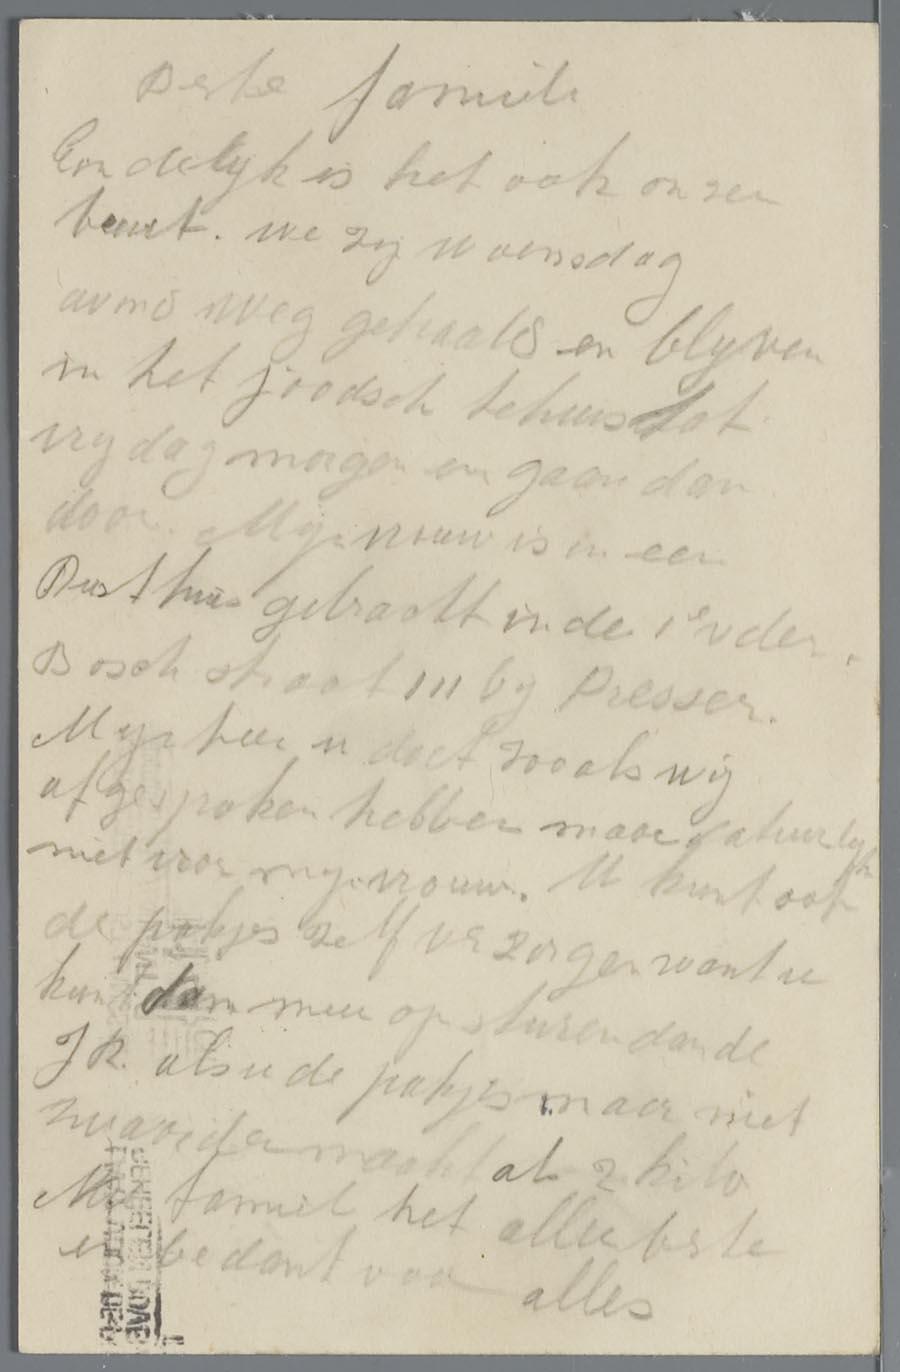 Beste familie
Eindelijk is het ook onzen
beurt. We zij woensdag
avond weg gehaald en blyven
in het joodsch tehuis tot
vrydag morgen en gaan dan
door. Myn vrouw is in een
Rusthuis gebracht in de 1e v der
Boschstraat 111 by Presser.
Myn heer u doet zooals wij
afgesproken hebben maar natuurlyk
niet voor myn vrouw. U kunt ook
de pakjes zelf verzorgen want u
kunt dan meer op sturen dan de
J R. als u de pakjes maar niet
zwaarder maakt als 2 kilo
Nu famiel het aller beste
en bedant voor alles